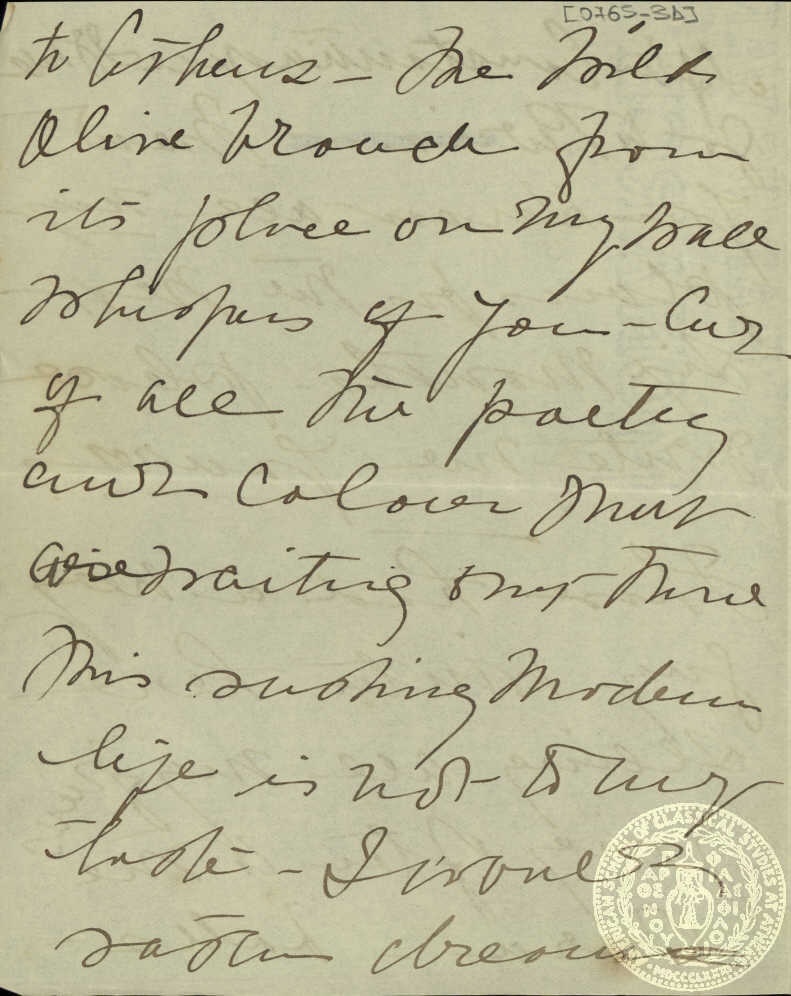 [0765-3Δ]
to Athens – The Wild
Olive branch from
its place on my wall
whispers of you – and
of all the poetry
and colour that
waiting out there
this rushing Modern
life is not to my
taste – I would
rather dream
AMERICAN SCHOOL OF CLASSICAL STUDIES AT ATHENS